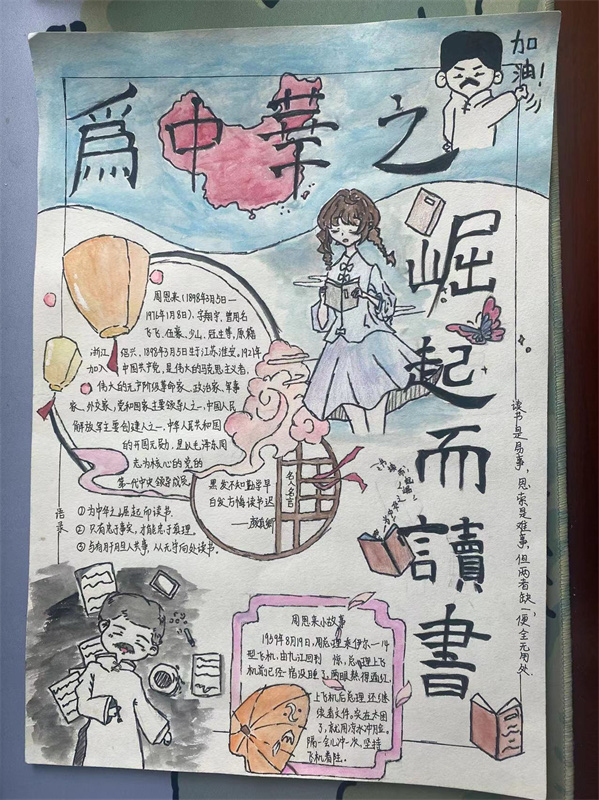 為中華之
崛起而讀書
加油!
周恩来(1898年3月5日—
1976年1月8日),字翔宇,曾用名
飞飞、伍豪、少山、冠生等,原籍
浙江绍兴,1898年3月5日生于江苏淮安。1921年
加入中国共产党,是伟大的马克思主义者,
伟大的无产阶级革命家、政治家、军事
家、外交家,党和国家主要领导人之一,中国人民
解放军主要创建人之一,中华人民共和国
的开国元勋,是以毛泽东同
志为核心的党的
第一代中央领导成员。
语录
①为中华之崛起而读书。
②只有忠于事实,才能忠于真理。
③与有肝胆人共事,从无字句处读书。
黑发不知勤学早
白发方悔读书迟
——颜真卿
名人名言
读书是易事,思索是难事,但两者缺一,便全无用处.
周恩来小故事
1959年8月19日,周总理乘伊尔一14
型飞机,由九江回到
上飞机后总理还继
续看文件。实在太困
了,就用冷水冲脸。
隔一会儿冲一次,坚持
飞机着陆。